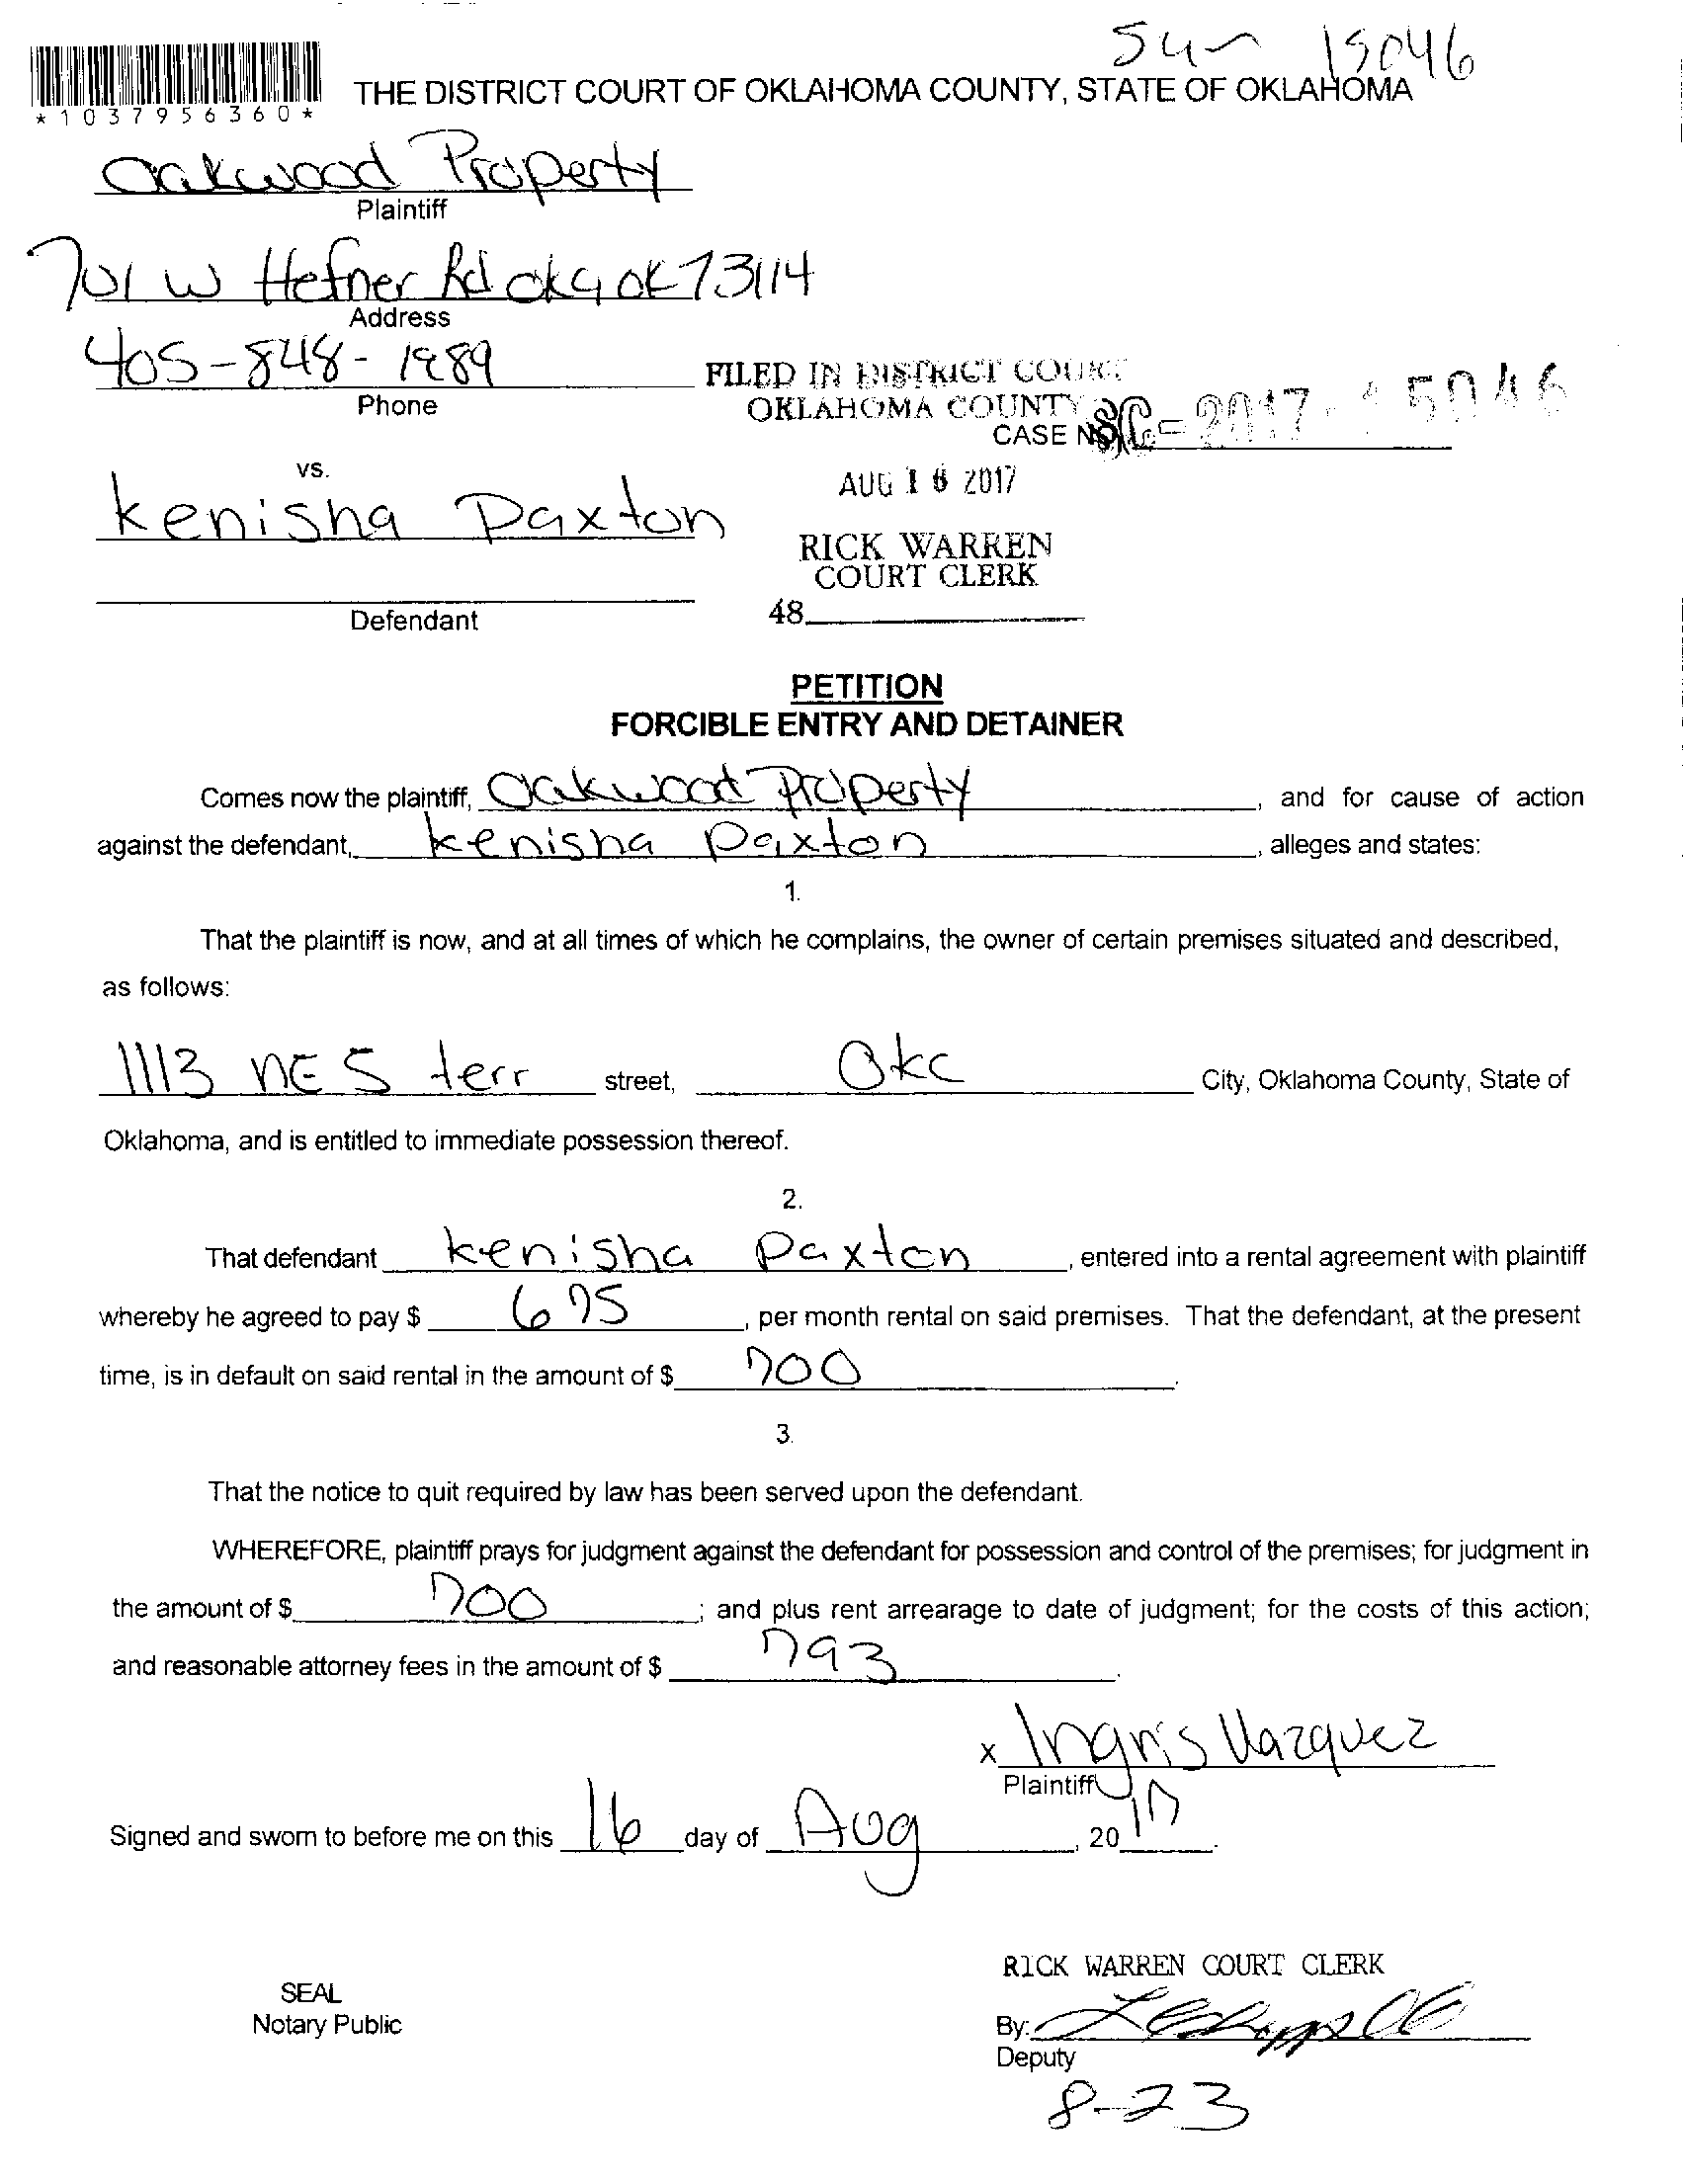 Sun 15046
THE DISTRICT COURT OF OKLAHOMA COUNTY, STATE OF OKLAHOMA
*1037956360*
Oakwood Property
Plaintiff
701 W Hefner Rd okc ok 73114
Address
405-848-1989
Phone
FILED IN DISTRICT COURT
OKLAHOMA COUNTY
CASE NO. SC-2017-15046
vs.
AUG 16 2017
kenisha Paxton
RICK WARREN
COURT CLERK
48
Defendant
PETITION
FORCIBLE ENTRY AND DETAINER
Comes now the plaintiff, Oakwood Property, and for cause of action
against the defendant, kenisha Paxton, alleges and states:
1.
That the plaintiff is now, and at all times of which he complains, the owner of certain premises situated and described,
as follows:
1113 NE 5 terr street, Okc City, Oklahoma County, State of
Oklahoma, and is entitled to immediate possession thereof.
2.
That defendant kenisha Paxton, entered into a rental agreement with plaintiff
whereby he agreed to pay $ 675, per month rental on said premises. That the defendant, at the present
time, is in default on said rental in the amount of $ 700.
3.
That the notice to quit required by law has been served upon the defendant.
WHEREFORE, plaintiff prays for judgment against the defendant for possession and control of the premises; for judgment in
the amount of $ 700; and plus rent arrearage to date of judgment; for the costs of this action;
and reasonable attorney fees in the amount of $ 793.
x Ingris Vazquez
Plaintiff
Signed and sworn to before me on this 16 day of Aug, 20 17.
RICK WARREN COURT CLERK
SEAL
Notary Public
By:
Deputy
8-23